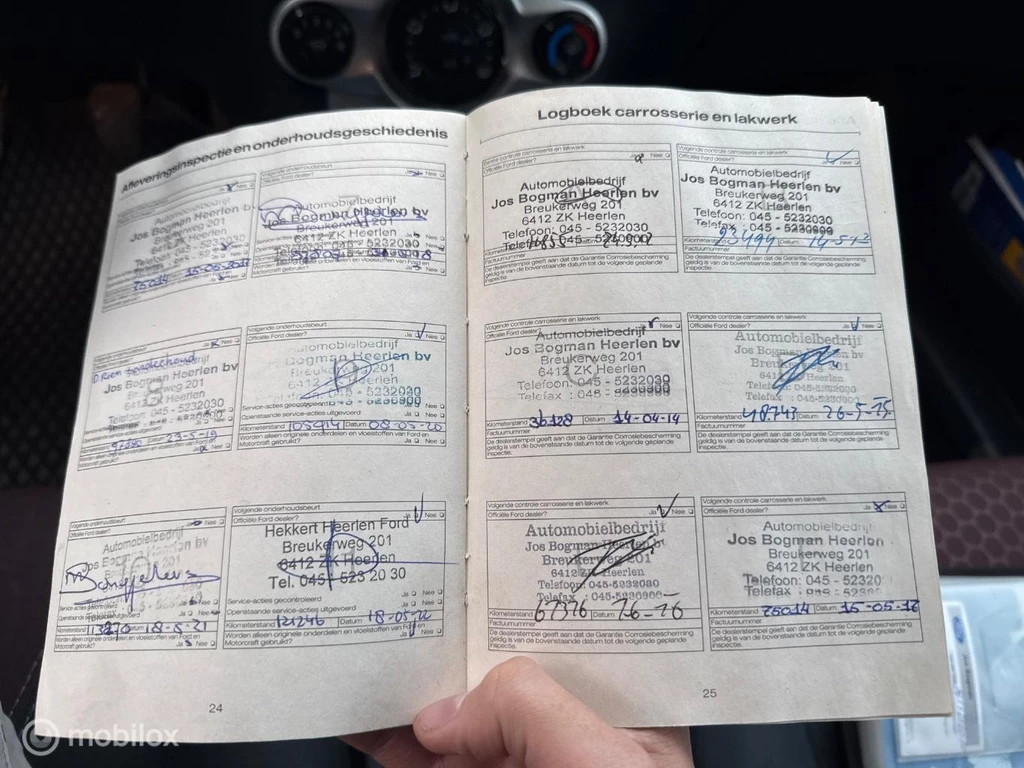 Afleveringsinspectie en onderhoudsgeschiedenis
Volgende onderhoudsbeurt
Officiële Ford dealer? Ja Nee
Automobielbedrijf
Jos Bogman Heerlen bv
Breukerweg 201
6412 ZK Heerlen
045 - 5232030
75014 15-05-
Volgende onderhoudsbeurt
Officiële Ford dealer? Nee
Automobielbedrijf
Jos Bogman Heerlen bv
Breukerweg 201
6412 ZK Heerlen
Telefoon: 045 - 5232030
Worden alleen originele onderdelen en vloeistoffen van Ford en
Motorcraft gebruikt? Ja Nee
Volgende onderhoudsbeurt
Officiële Ford dealer? Ja Nee
Automobielbedrijf
Jos Bogman Heerlen bv
Breukerweg 201
6412 ZK Heerlen
045 - 5232030
23-5-
Worden alleen originele onderdelen en vloeistoffen van Ford en
Motorcraft gebruikt? Ja Nee
Volgende onderhoudsbeurt
Officiële Ford dealer? Ja Nee
Automobielbedrijf
Bogman Heerlen bv
Breukerweg 201
6412 Heerlen
045 - 5232030
Service-acties gecontroleerd
Openstaande service-acties uitgevoerd Ja Nee
Kilometerstand 105914 Datum 08-05-20
Worden alleen originele onderdelen en vloeistoffen van Ford en
Motorcraft gebruikt? Ja Nee
Volgende onderhoudsbeurt
Officiële Ford dealer? Nee
Automobielbedrijf
Jos
Breukerweg 201
Service-acties gecontroleerd
Kilometerstand 18-5-21
Worden alleen originele onderdelen en vloeistoffen van Ford en
Motorcraft gebruikt? Ja Nee
Volgende onderhoudsbeurt
Officiële Ford dealer? Ja Nee
Hekkert Heerlen Ford
Breukerweg 201
6412 ZK Heerlen
Tel. 045 - 523 20 30
Service-acties gecontroleerd Ja Nee
Openstaande service-acties uitgevoerd Ja Nee
Kilometerstand 121246 Datum 18-05-22
Worden alleen originele onderdelen en vloeistoffen van Ford en
Motorcraft gebruikt? Ja Nee
24
Logboek carrosserie en lakwerk
Eerste controle carrosserie en lakwerk
Officiële Ford dealer? Ja Nee
Automobielbedrijf
Jos Bogman Heerlen bv
Breukerweg 201
6412 ZK Heerlen
Telefoon: 045 - 5232030
Factuurnummer
De dealerstempel geeft aan dat de Garantie Corrosiebescherming
geldig is van bovenstaande datum tot de volgende geplande
inspectie.
Volgende controle carrosserie en lakwerk
Officiële Ford dealer? Ja Nee
Automobielbedrijf
Jos Bogman Heerlen bv
Breukerweg 201
6412 ZK Heerlen
Telefoon: 045 - 5232030
Telefax: 045 - 5230900
Kilometerstand 23499 Datum 14-5-13
Factuurnummer
De dealerstempel geeft aan dat de Garantie Corrosiebescherming
geldig is van de bovenstaande datum tot de volgende geplande
inspectie.
Volgende controle carrosserie en lakwerk
Officiële Ford dealer? Ja Nee
Automobielbedrijf
Jos Bogman Heerlen bv
Breukerweg 201
6412 ZK Heerlen
Telefoon: 045 - 5232030
Telefax : 045 - 5230900
Kilometerstand 36128 Datum 14-04-14
Factuurnummer
De dealerstempel geeft aan dat de Garantie Corrosiebescherming
geldig is van de bovenstaande datum tot de volgende geplande
inspectie.
Volgende controle carrosserie en lakwerk
Officiële Ford dealer? Ja Nee
Automobielbedrijf
Jos Heerlen bv
Breukerweg 201
6412 ZK Heerlen
Telefoon: 045-5232030
Telefax : 045-5230900
Kilometerstand 48743 Datum 26-5-15
Factuurnummer
De dealerstempel geeft aan dat de Garantie Corrosiebescherming
geldig is van de bovenstaande datum tot de volgende geplande
inspectie.
Volgende controle carrosserie en lakwerk
Officiële Ford dealer? Ja Nee
Automobielbedrijf
Jos Bogman Heerlen bv
Breukerweg 201
6412 ZK Heerlen
Telefoon: 045-5232030
Telefax : 045-5230900
Kilometerstand 67376
Factuurnummer
De dealerstempel geeft aan dat de Garantie Corrosiebescherming
geldig is van de bovenstaande datum tot de volgende geplande
inspectie.
Volgende controle carrosserie en lakwerk
Officiële Ford dealer? Ja Nee
Automobielbedrijf
Jos Bogman Heerlen bv
Breukerweg 201
6412 ZK Heerlen
Telefoon: 045 - 52320
Telefax
Kilometerstand 75014 Datum 15-05-
Factuurnummer
De dealerstempel geeft aan dat de Garantie Corrosiebescherming
geldig is van de bovenstaande datum tot de volgende geplande
inspectie.
25
mobilox